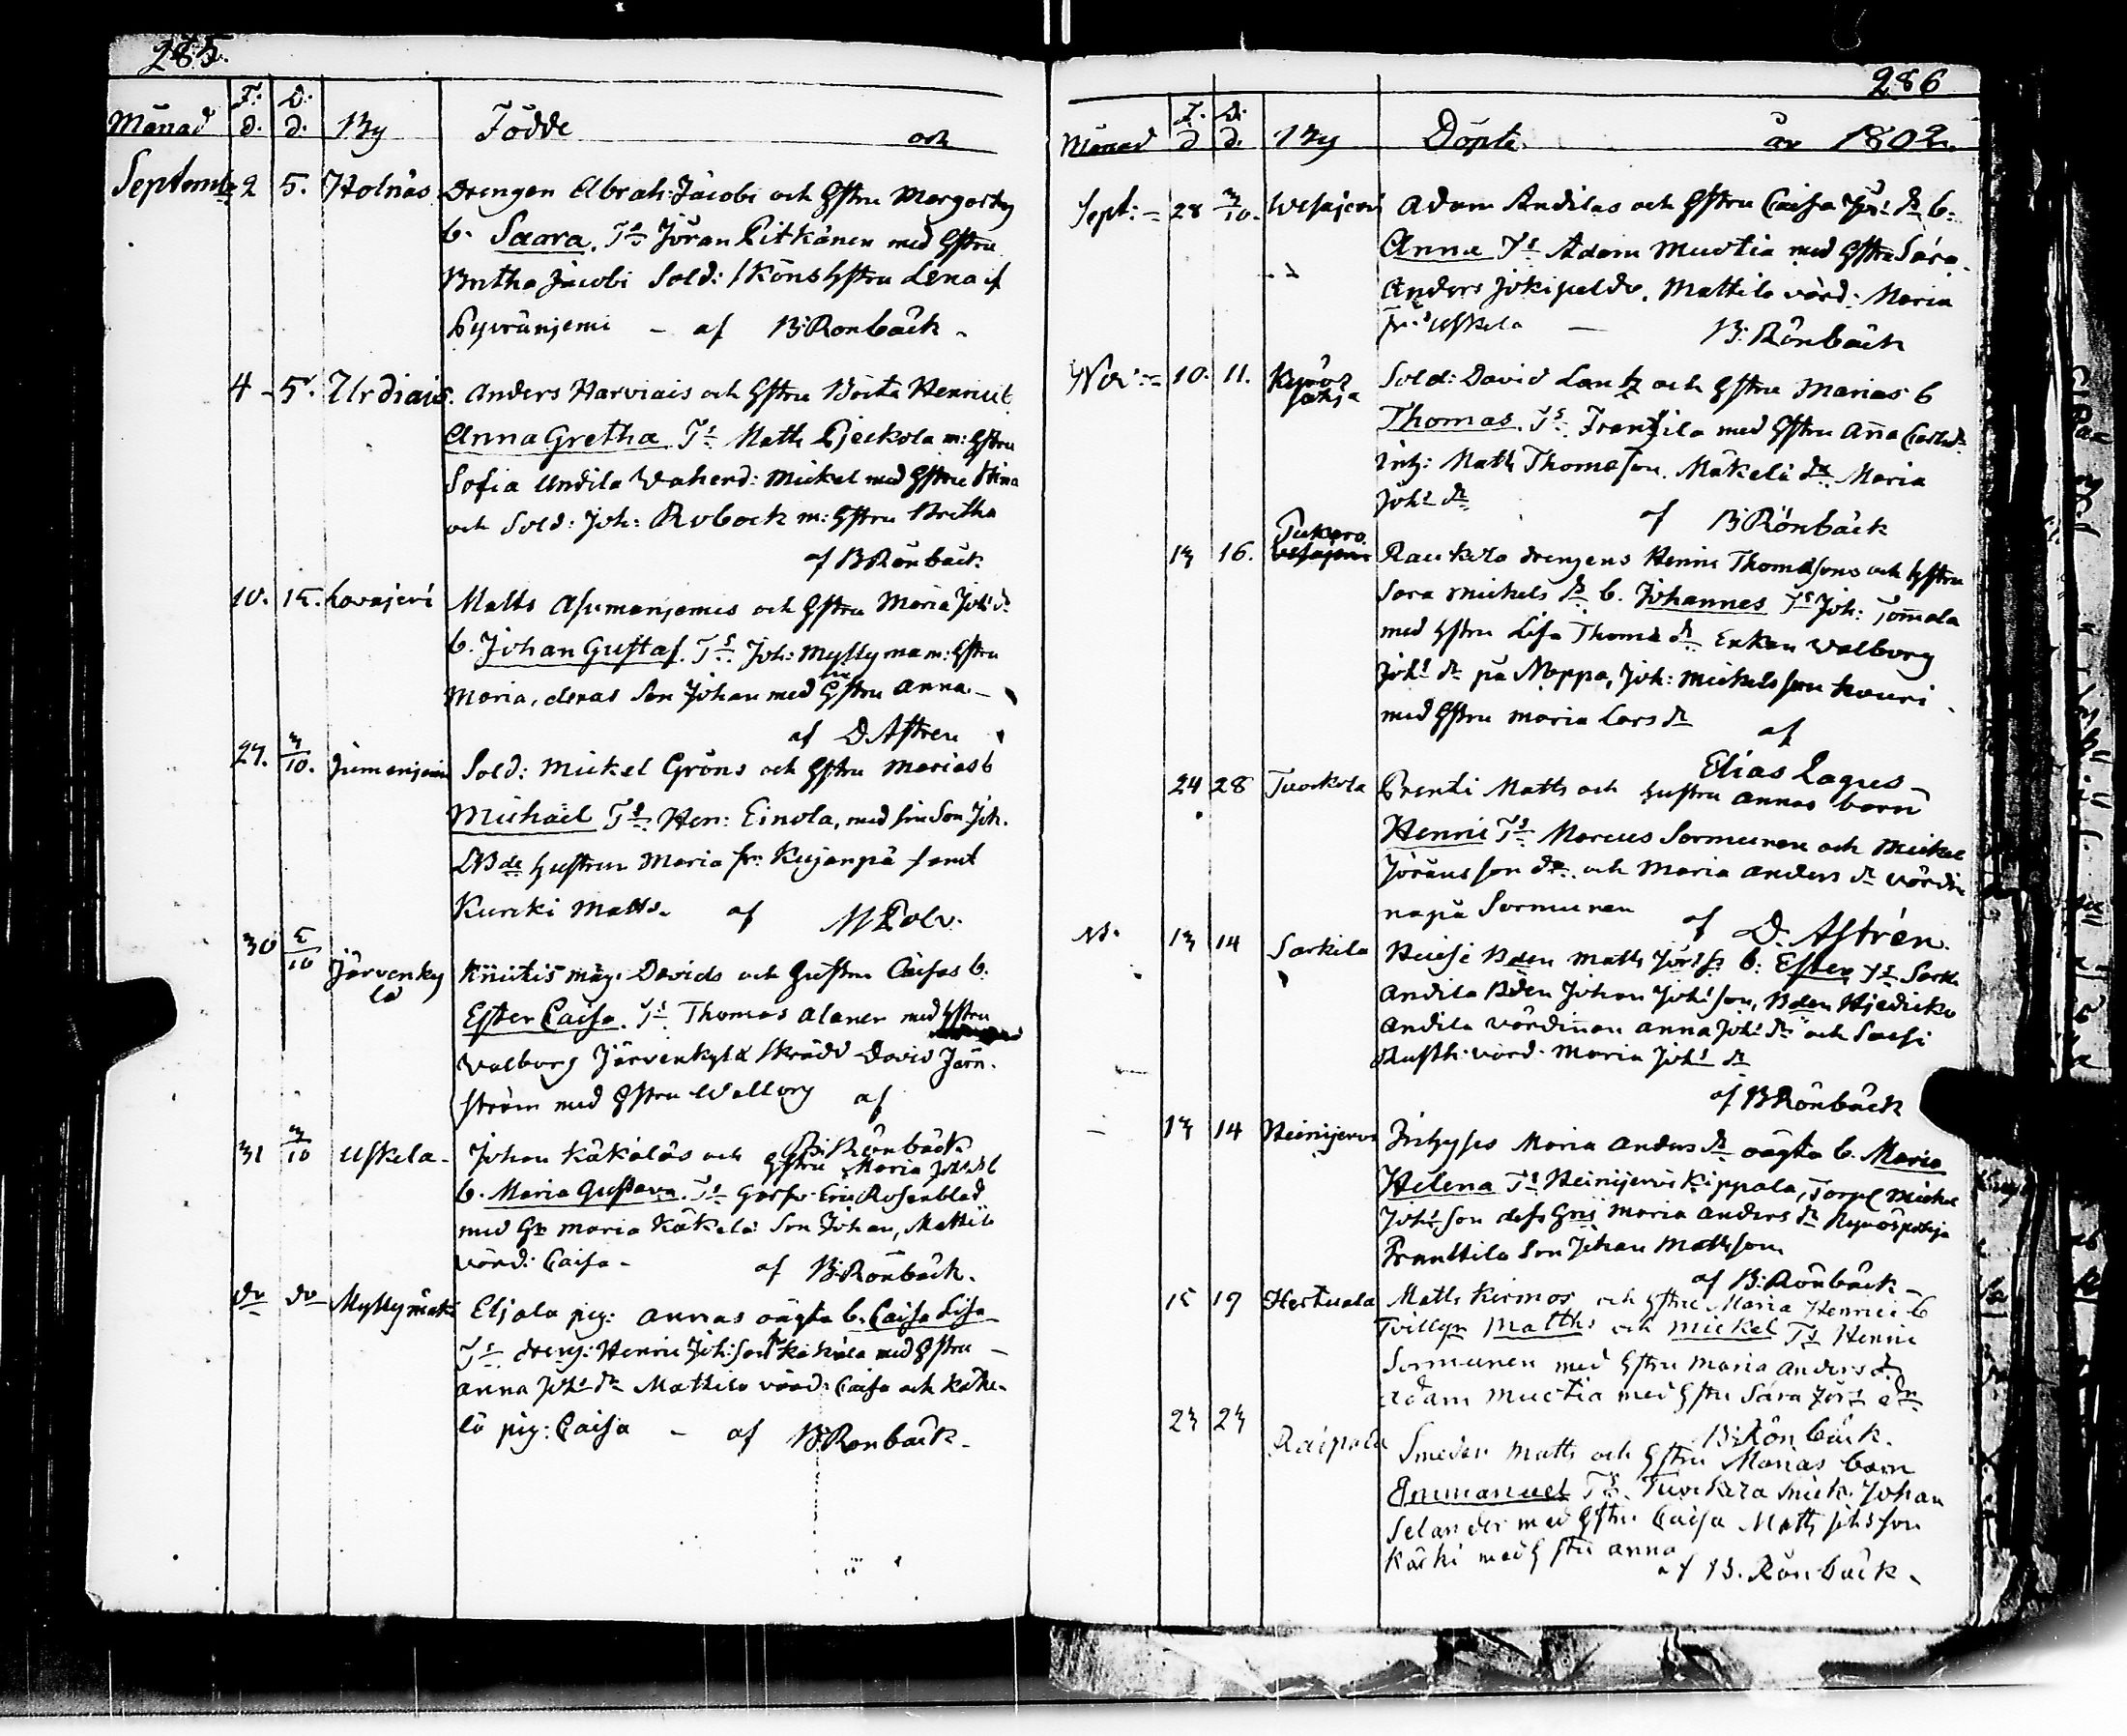 285.
Månad F: d. D: d. By Födde och
Septemb: 2 5. Holnäs Drengen Abrah: Jacobs och Hstru Margarets
b. Saara. Ts Jöran Pitkänen med Hstru
Britha Jacobi Sold: Sköns Hstru Lena af
Pyöränjemi – af B: Rönbäck –
4 – 5. Urdiais. Anders Harviais och Hstru Brita Henrics b.
Anna Gretha Ts Matts Pjeckola m: Hstru
Sofia Undila Waherd: Mickel med Hstru Stina
och Sold: Joh: Robock m: Hstru Britha
af B Rönbäck
10. 15. Lavajervi Matts Asumanjemis och Hstru Maria Johs dr
b. Johan Gustaf. Ts Joh: Myllyma m: Hstru
Maria, deras Son Johan med Hstru Anna –
af D. Astren
27. 3/10. Jumenjemi Sold: Mickel Gröns och Hstru Marias b
Michaël Ts Hen: Einola, med sin Son Joh.
LBde Hustrun Maria fr: Kujanpä samt
Kurcki Matts. af M Polv.
30 5/10 Järvenky
lä Knutis måg: Davids och Hustru Caisas b.
Ester Caisa. Ts Thomas Alaner med Hstru
Valborg Järvenkylä Skrädd David Järn.
ström med Hstru Wallborg af
B: Rönbäck
31 3/10 Uskela – Johan Käkäläs och Hstru Maria Johs dr
b. Maria Gustava. Ts Garfv: Eric Rosenblad
med Hr Maria Käkelä Son Johan, Mattila
värd: Caisa – af B: Rönbäck.
do do Myllymäki Eljala pig: Annas oägta b. Caisa Lisa
Ts dreng: Henric Joh: Son Kakola med Hstru –
Anna Johs dr Mattila värd: Caisa och Käke-
lä pig: Caisa – af B: Rönbäck –
286
Månad F. d D: d. By Döpte år 1802.
Sept: – 28 3/10. Wesajervi Adam Andilas och Hstru Caisa Jörs dr b:
Anna Ts Adam Mustia med Hstru Sara.
Anders Jokipeldo, Mattila värd: Maria
fr: Uskela – B: Rönbäck
Nov: – 10. 11. Kyrös
pohja Sold: David Lantz och Hstru Marias b
Thomas. Ts Frantsila med Hstru Anna Carlsdr
Inh: Matts Thomasson. Mäkelä dr Maria
Johs dr
af B Rönbäck
13 16. Tukoro Raukko drengens Henric Thomassons och Hstru
Sara Mickels dr b. Johannes Ts Joh: Tommola
med Hstru Lisa Thoms dr Enkan Walborg
Johs dr på Noppa, Joh: Mickelsson Kouri
med Hstru Maria Lars dr af
Elias Lagus –
24 28 Tuokola Prenti Matts och hustru Annas barn
Henric Ts Marcus Sormunen och Mickel
Jöransson do. och Maria Anders dr värdin
na på Sormunen af D. Astrén.
N. 13 14 Sarkila Heisi Bden Matts Jörs S b: Ester Ts Sark.
Andila Bden Johan Johs son, Bden Hjedicko
Andila värdinnan Anna Johs dr och Sassi
Rusth: värd: Maria Johs dr
af B Rönbäck
– 13 14 Heinijervi Inhyses Maria Anders dr oägta b. Maria
Helena Ts Heinijervi Kippala, Torp Mickel
Johs son dess Gris Maria Anders dr Kyröspohja
Franttila Son Johan Mattsson
af B: Rönbäck –
15 19 Hertuala Matts Kirmos och Hstru Maria Henrics b
Tvillgr Matths och Mickel Ts Henric
Sormunen med Hstru Maria Anders dr
Adam Mustia med Hstru Sara Jörs dr
B: Rönbäck.
23 23 Raipala Smeden Matts och Hstru Marias barn
Emmanuel Ts. Tuokola Snick: Johan
Selander med Hstru Caisa Matts Johsson
Käcki med Hstru Anna
af B. Rönbäck –